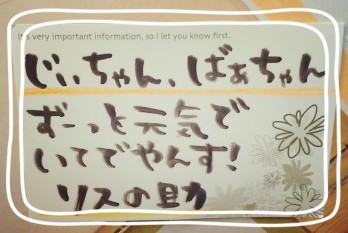 It's very important information, so I let you know first.
じぃちゃん、ばぁちゃん
ずーっと元気で
いてでやんす!
リスの助